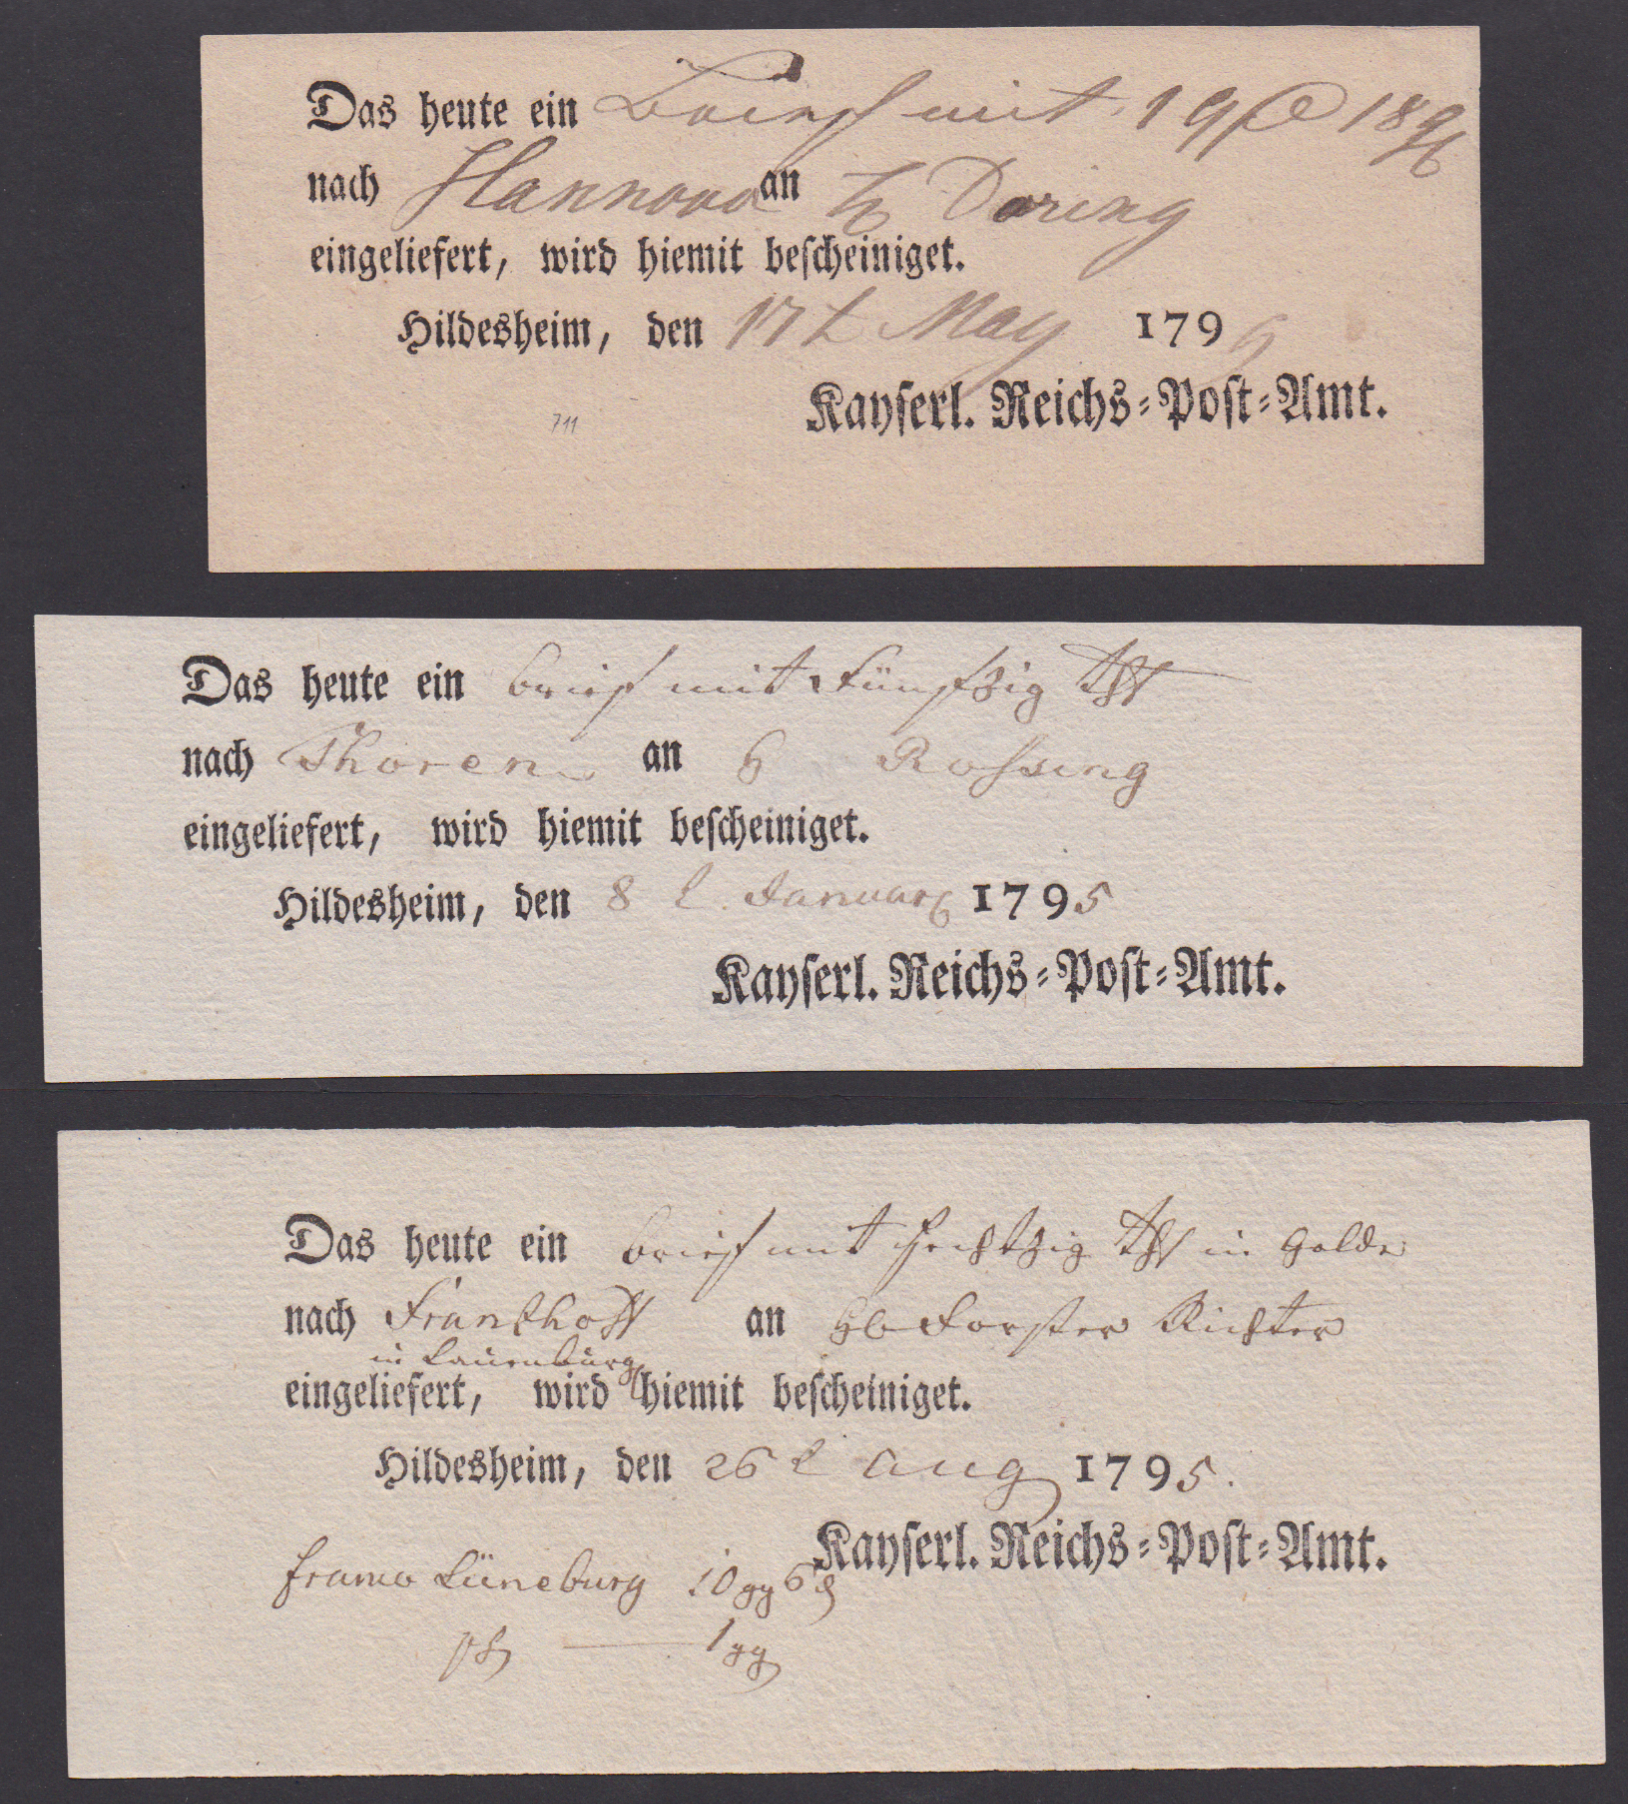 Das heute ein Brief mit 19 18 gg
nach Hannover an H Doring
eingeliefert, wird hiemit beſcheiniget.
Hildesheim, den 17t May 179
Kayſerl. Reichs-Poſt-Amt.
711
Das heute ein brief mit Fünfzig Thl
nach Thoren an H Roſsing
eingeliefert, wird hiemit beſcheiniget.
Hildesheim, den 8 t. Januar 1795
Kayſerl. Reichs-Poſt-Amt.
Das heute ein brief mit ſechtzig Thl in Golde
nach an Förſter Richter
in Lauenburg
eingeliefert, wird hiemit beſcheiniget.
Hildesheim, den 26 t Aug 1795.
Kayſerl. Reichs-Poſt-Amt.
franco Lüneburg 10 gg 6 d
1 gg